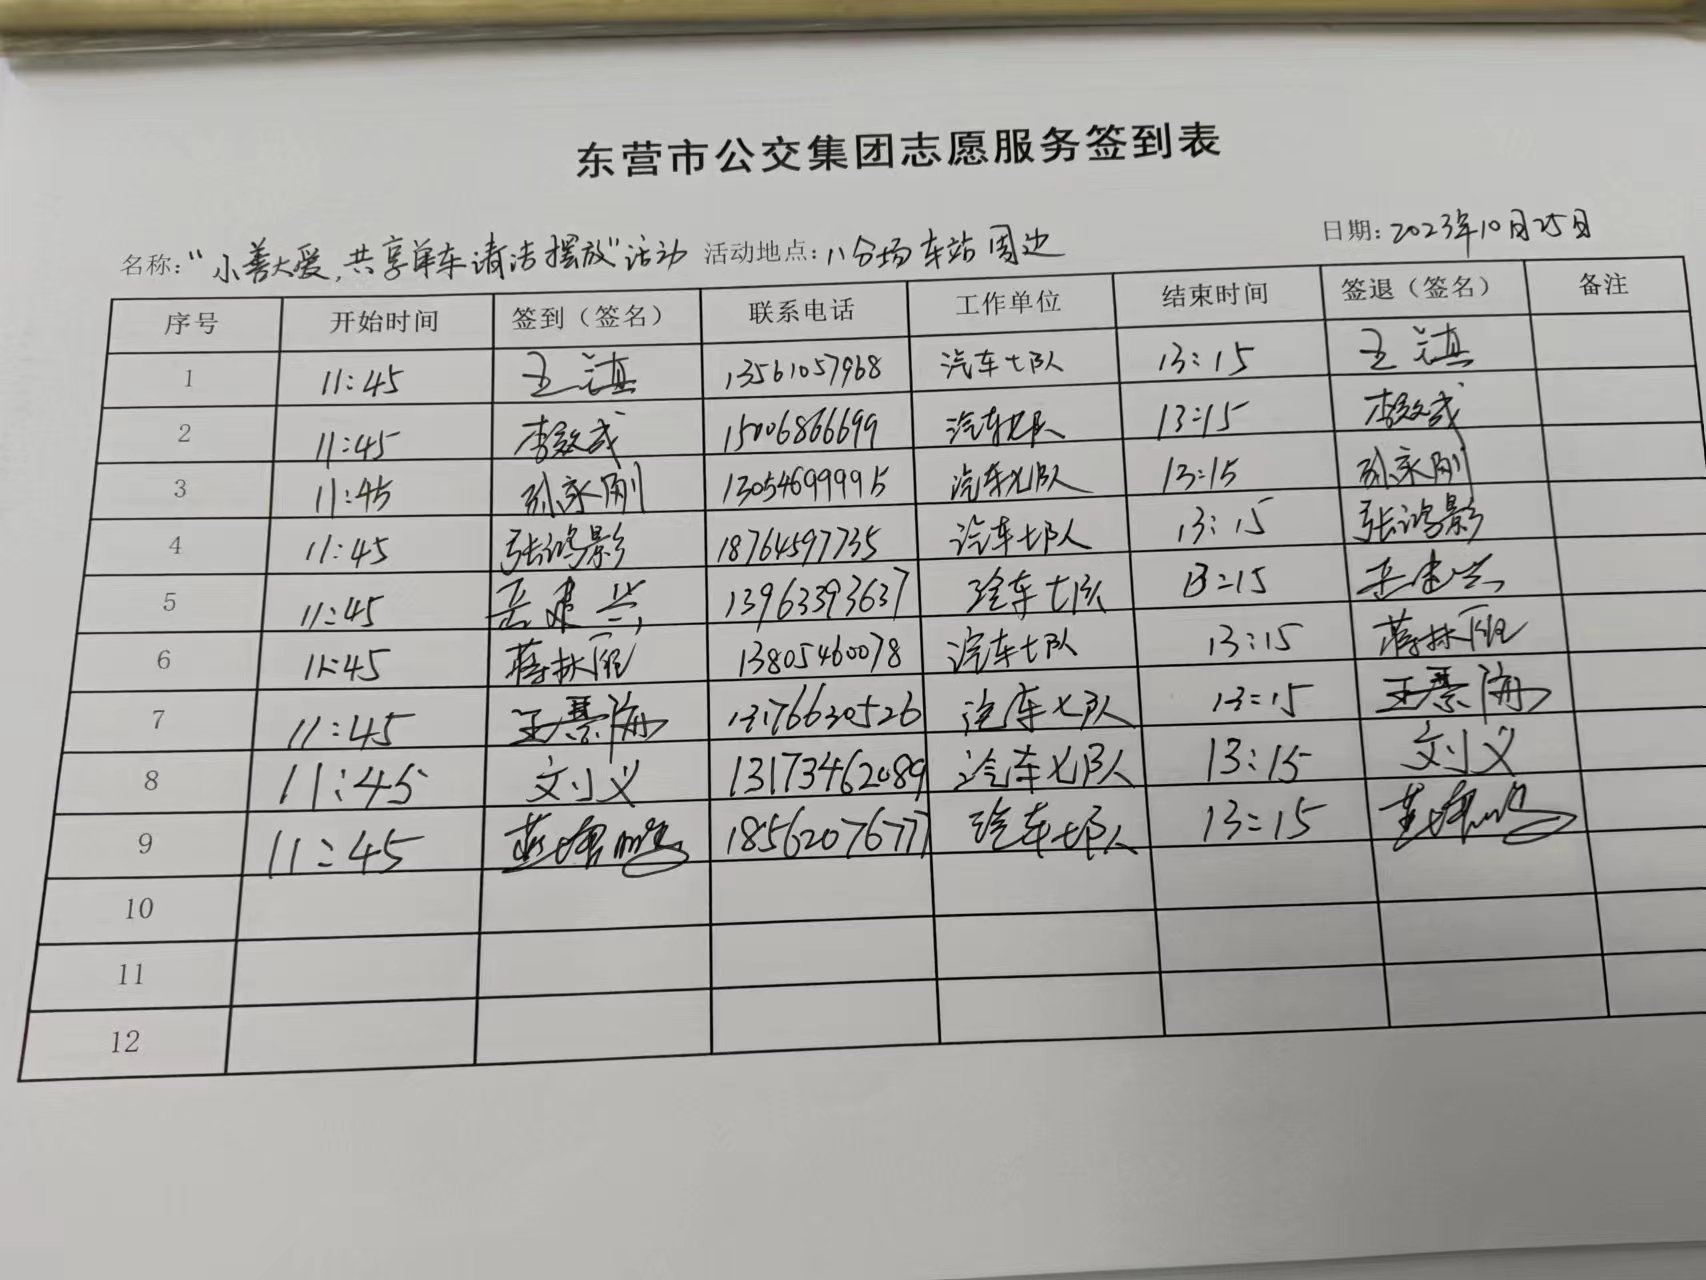 东营市公交集团志愿服务签到表
日期: 2023年10月25日
名称: “小善大爱,共享单车清洁摆放”活动 活动地点: 八分场车站周边
序号 开始时间 签到（签名） 联系电话 工作单位 结束时间 签退（签名） 备注
1 11:45 王滇 13561057968 汽车七队 13:15 王滇
2 11:45 李效武 15006866699 汽车七队 13:15 李效武
3 11:45 孙永刚 13054699995 汽车七队 13:15 孙永刚
4 11:45 张鸿影 18764597735 汽车七队 13:15 张鸿影
5 11:45 岳建兴 13963393637 汽车七队 13:15 岳建兴
6 11:45 13805460078 汽车七队 13:15
7 11:45 王慕海 13176630526 汽车七队 13:15 王慕海
8 11:45 刘义 13173462089 汽车七队 13:15 刘义
9 11:45 18562076777 汽车七队 13:15
10
11
12